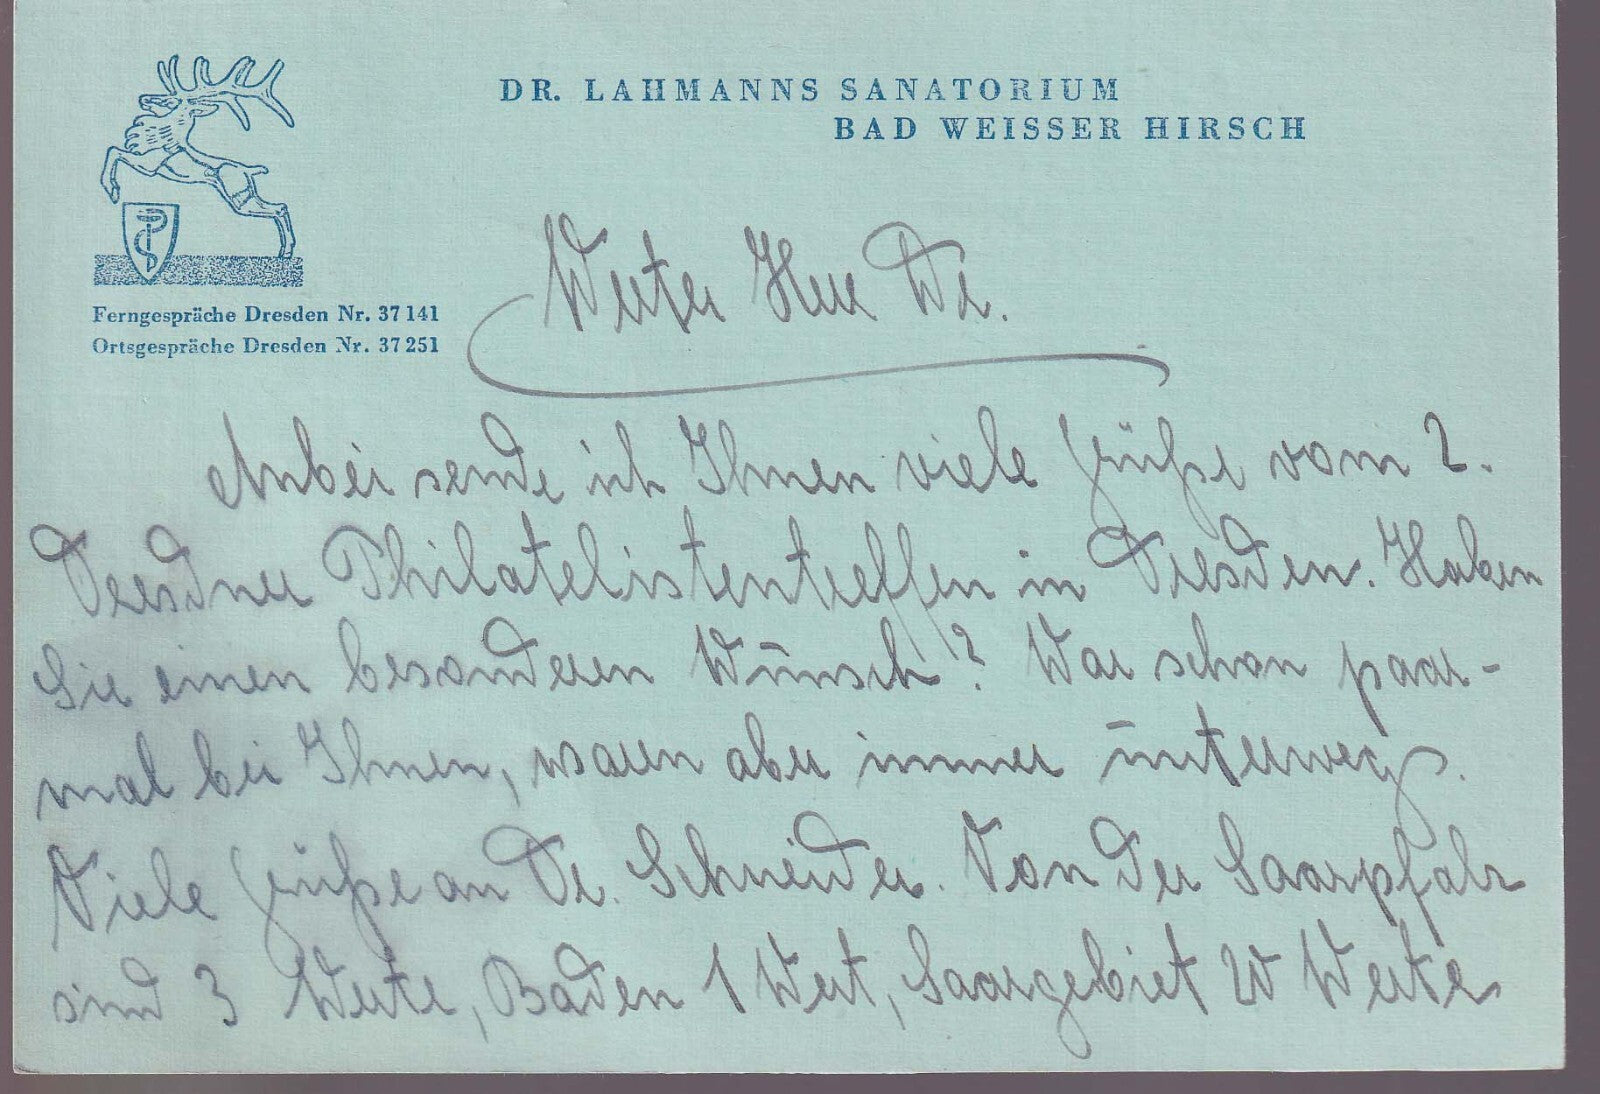 DR. LAHMANNS SANATORIUM
BAD WEISSER HIRSCH
Ferngespräche Dresden Nr. 37 141
Ortsgespräche Dresden Nr. 37 251
Werter Herr Dr.
Anbei sende ich Ihnen viele Grüße vom 2.
Dresdner Philatelistentreffen in Dresden. Haben
Sie einen besonderen Wunsch? War schon paar-
mal bei Ihnen, waren aber immer unterwegs.
Viele Grüße an Dr. Schneider. Von der Saarpfalz
sind 3 Werte, Baden 1 Wert, Saargebiet 20 Werte